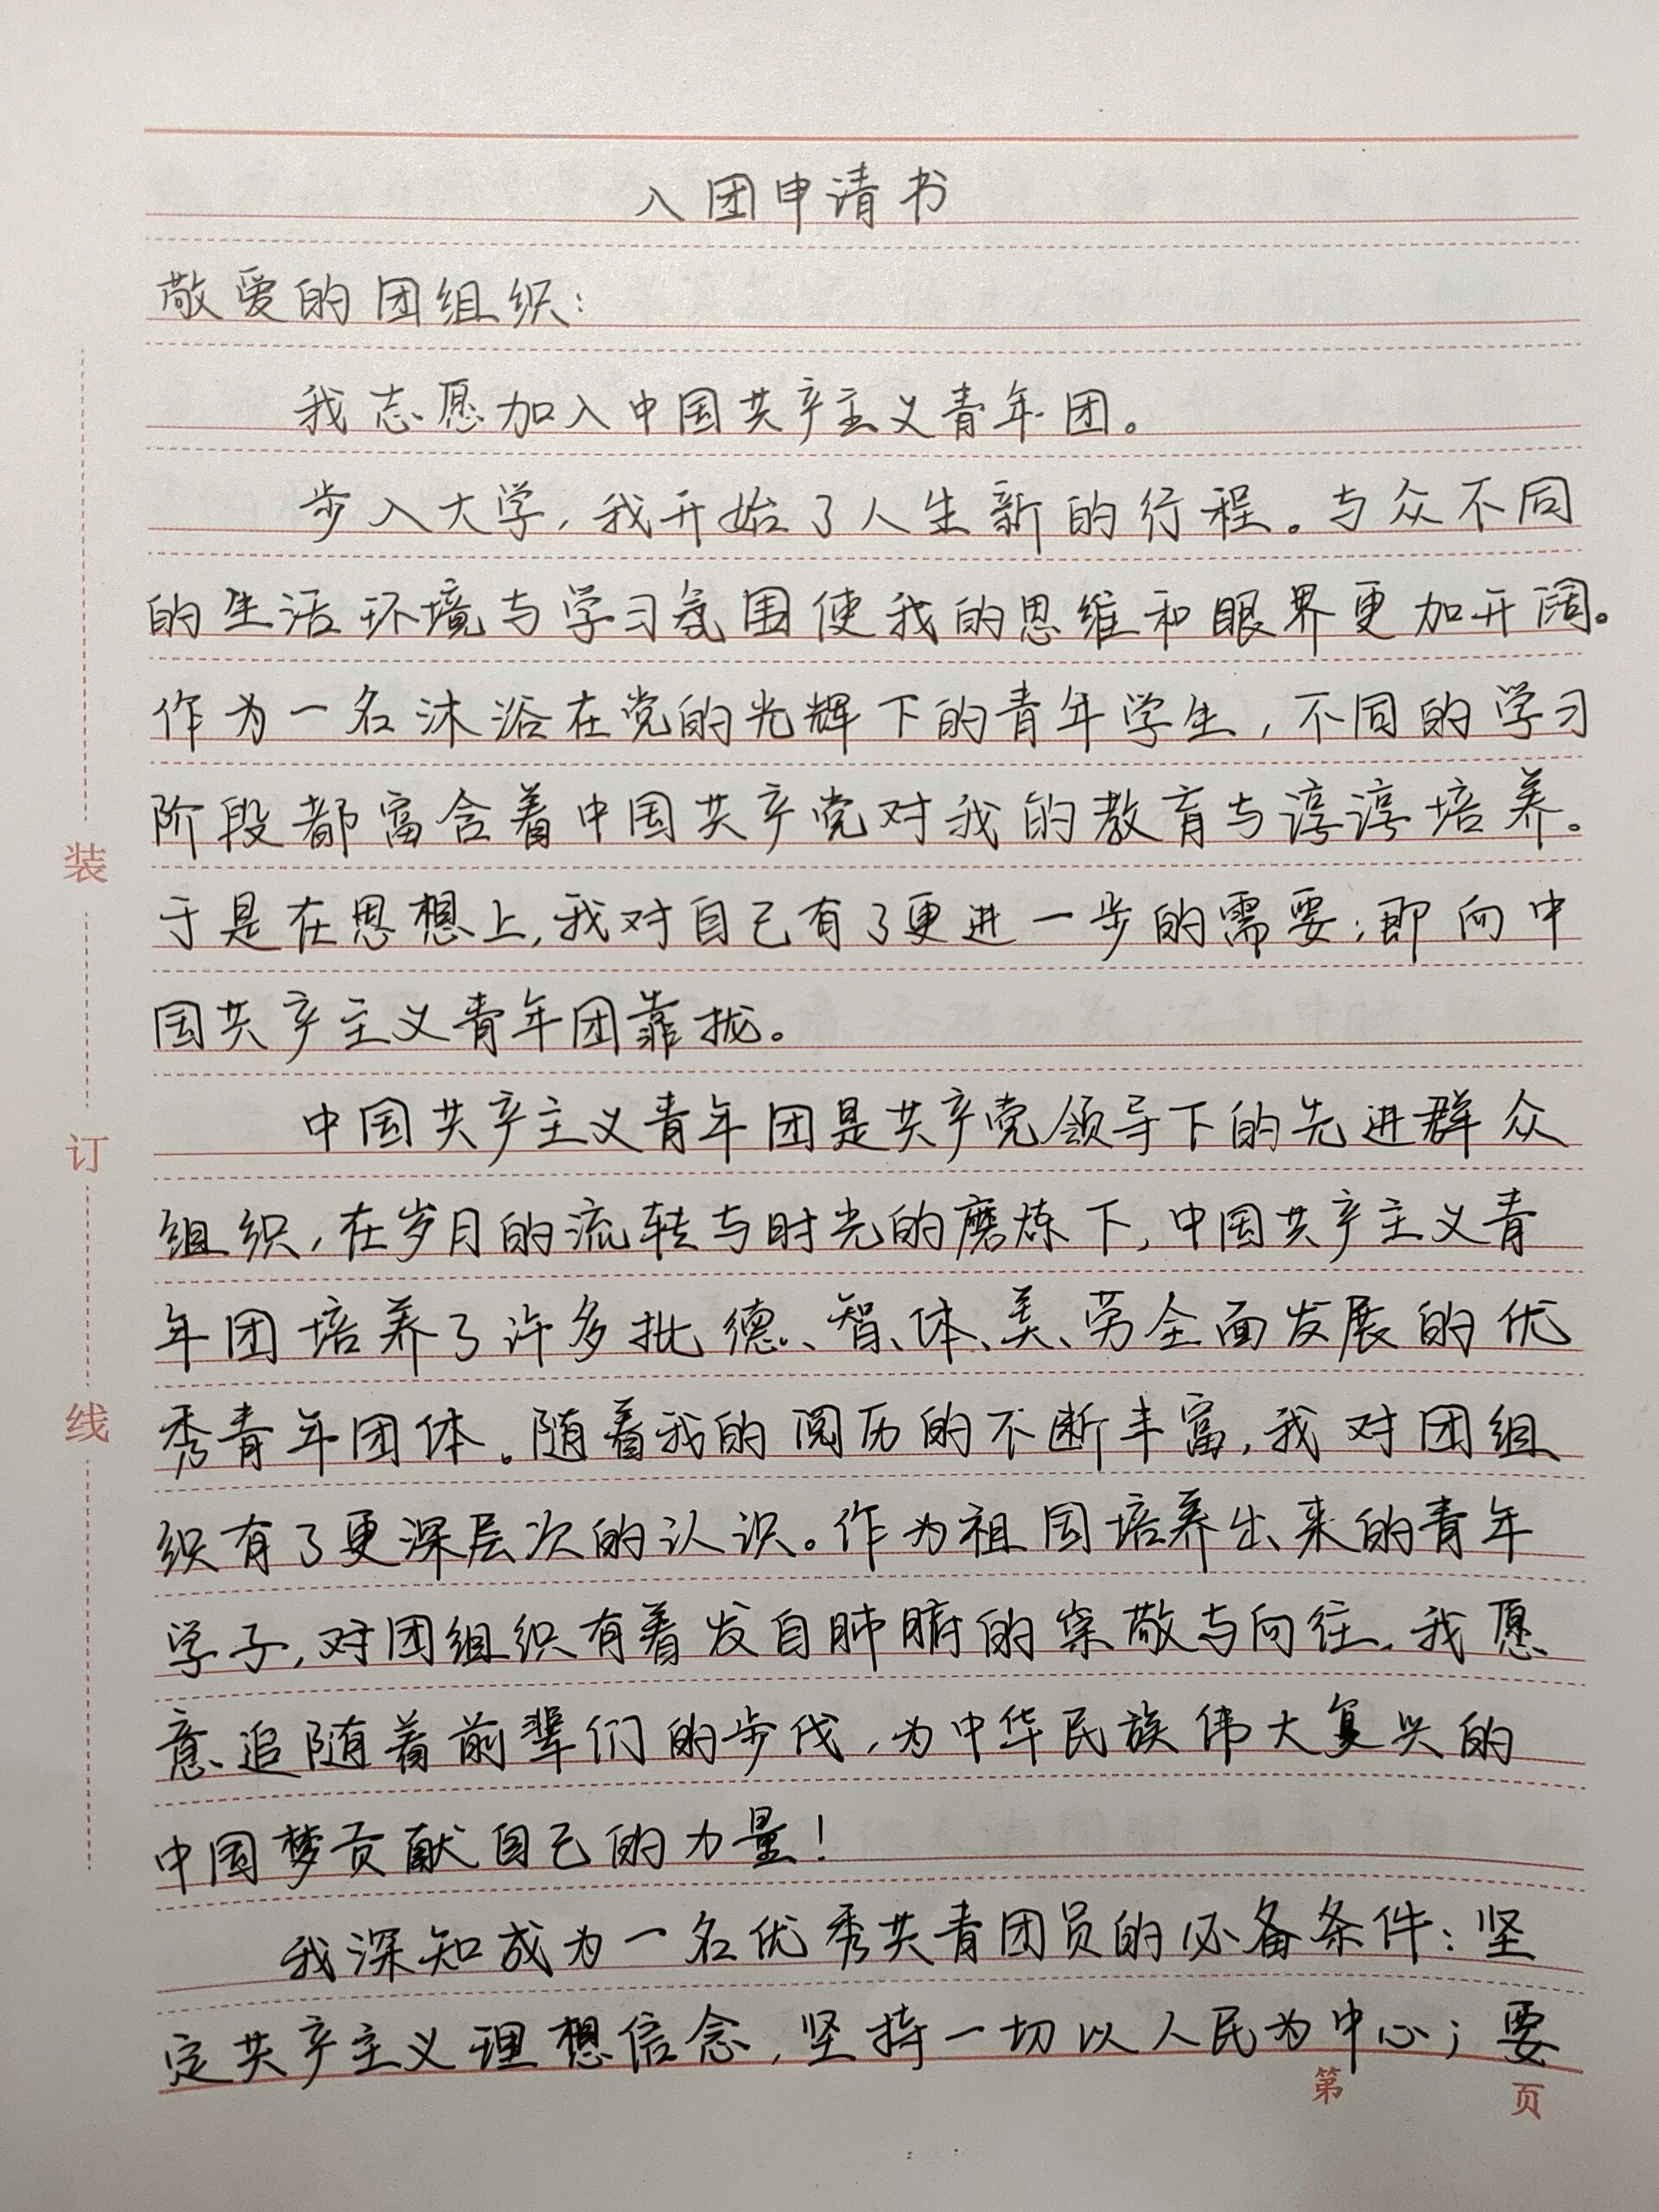 入团申请书
敬爱的团组织：
我志愿加入中国共产主义青年团。
步入大学，我开始了人生新的行程。与众不同
的生活环境与学习氛围使我的思维和眼界更加开阔。
作为一名沐浴在党的光辉下的青年学生，不同的学习
阶段都富含着中国共产党对我的教育与谆谆培养。
于是在思想上，我对自己有了更进一步的需要；即向中
国共产主义青年团靠拢。
中国共产主义青年团是共产党领导下的先进群众
组织，在岁月的流转与时光的磨炼下，中国共产主义青
年团培养了许多批德、智、体、美、劳全面发展的优
秀青年团体。随着我的阅历的不断丰富，我对团组
织有了更深层次的认识。作为祖国培养出来的青年
学子，对团组织有着发自肺腑的崇敬与向往。我愿
意追随着前辈们的步伐，为中华民族伟大复兴的
中国梦贡献自己的力量！
我深知成为一名优秀共青团员的必备条件：坚
定共产主义理想信念，坚持一切以人民为中心；要
第 页
装
订
线